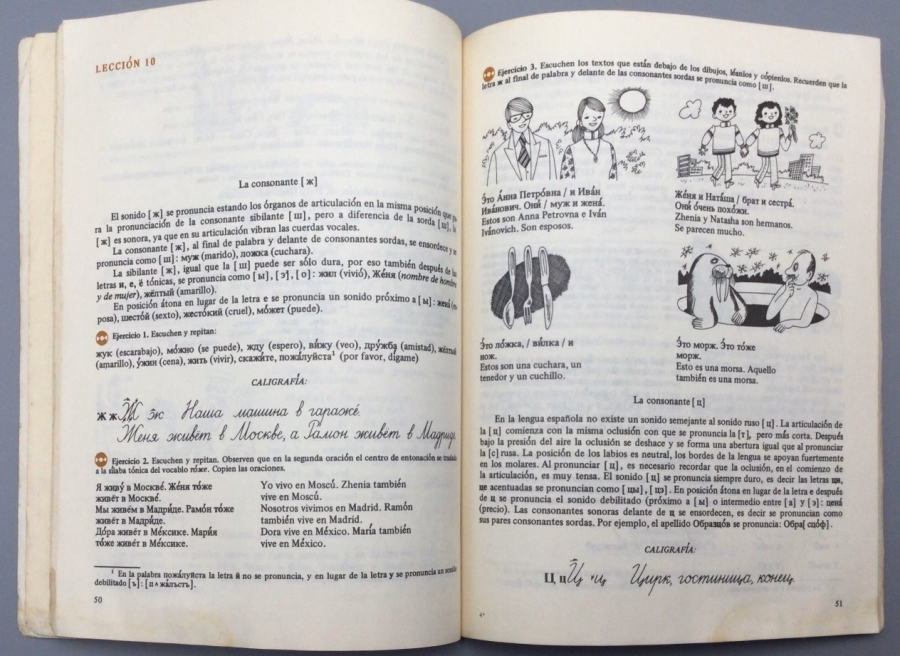 LECCIÓN 10
La consonante [ж]
El sonido [ж] se pronuncia estando los órganos de articulación en la misma posición que
ra la pronunciación de la consonante sibilante [ш], pero a diferencia de la sorda [ш], la
[ж] es sonora, ya que en su articulación vibran las cuerdas vocales.
La consonante [ж], al final de palabra y delante de consonantes sordas, se ensordece y se
pronuncia como [ш]: муж (marido), ложка (cuchara).
La sibilante [ж], igual que la [ш] puede ser sólo dura, por eso también después de las
letras и, е, ё tónicas, se pronuncia como [ы], [э], [о]: жил (vivió), Же́ня (nombre de hombre
y de mujer), жёлтый (amarillo).
En posición átona en lugar de la letra e se pronuncia un sonido próximo a [ы]: жена́ (es-
posa), шесто́й (sexto), жесто́кий (cruel), мо́жет (puede).
Ejercicio 1. Escuchen y repitan:
жук (escarabajo), мо́жно (se puede), жду (espero), ви́жу (veo), дру́жба (amistad), жёлтый
(amarillo), у́жин (cena), жить (vivir), скажи́те, пожа́луйста¹ (por favor, dígame)
CALIGRAFÍA:
Ж ж Ж ж Наша машина в гараже.
Женя живёт в Москве, а Рамон живёт в Мадриде.
Ejercicio 2. Escuchen y repitan. Observen que en la segunda oración el centro de entonación se traslada
a la sílaba tónica del vocablo то́же. Copien las oraciones.
Я живу́ в Москве́. Же́ня то́же Yo vivo en Moscú. Zhenia también
живёт в Москве́. vive en Moscú.
Мы живём в Мадри́де. Рамо́н то́же Nosotros vivimos en Madrid. Ramón
живёт в Мадри́де. también vive en Madrid.
До́ра живёт в Ме́ксике. Мари́я Dora vive en México. María también
то́же живёт в Ме́ксике. vive en México.
¹ En la palabra пожа́луйста la letra й no se pronuncia, y en lugar de la letra y se pronuncia un sonido
debilitado [ъ]: [пʌжа́лъстъ].
50
Ejercicio 3. Escuchen los textos que están debajo de los dibujos, léanlos y cópienlos. Recuerden que la
letra ж al final de palabra y delante de las consonantes sordas se pronuncia como [ш].
Э́то А́нна Петро́вна / и Ива́н
Ива́нович. Они́ / муж и жена́.
Estos son Anna Petrovna e Iván
Ivánovich. Son esposos.
Же́ня и Ната́ша / брат и сестра́.
Они́ о́чень похо́жи.
Zhenia y Natasha son hermanos.
Se parecen mucho.
Э́то ло́жка, / ви́лка / и
нож.
Estos son una cuchara, un
tenedor y un cuchillo.
Э́то морж. Э́то то́же
морж.
Esto es una morsa. Aquello
también es una morsa.
La consonante [ц]
En la lengua española no existe un sonido semejante al sonido ruso [ц]. La articulación de
la [ц] comienza con la misma oclusión con que se pronuncia la [т], pero más corta. Después
bajo la presión del aire la oclusión se deshace y se forma una abertura igual que al pronunciar
la [с] rusa. La posición de los labios es neutral, los bordes de la lengua se apoyan fuertemente
en los molares. Al pronunciar [ц], es necesario recordar que la oclusión, en el comienzo de
la articulación, es muy tensa. El sonido [ц] se pronuncia siempre duro, es decir las letras ци,
це acentuadas se pronuncian como [цы], [цэ]. En posición átona en lugar de la letra e después
de ц se pronuncia el sonido debilitado (próximo a [ы] o intermedio entre [а] y [э]: цена́
(precio). Las consonantes sonoras delante de ц se ensordecen, es decir se pronuncian como
sus pares consonantes sordas. Por ejemplo, el apellido Образцо́в se pronuncia: Обра[сцо́ф].
CALIGRAFÍA:
Ц ц Ц ц Цирк, гостиница, конец.
4*
51